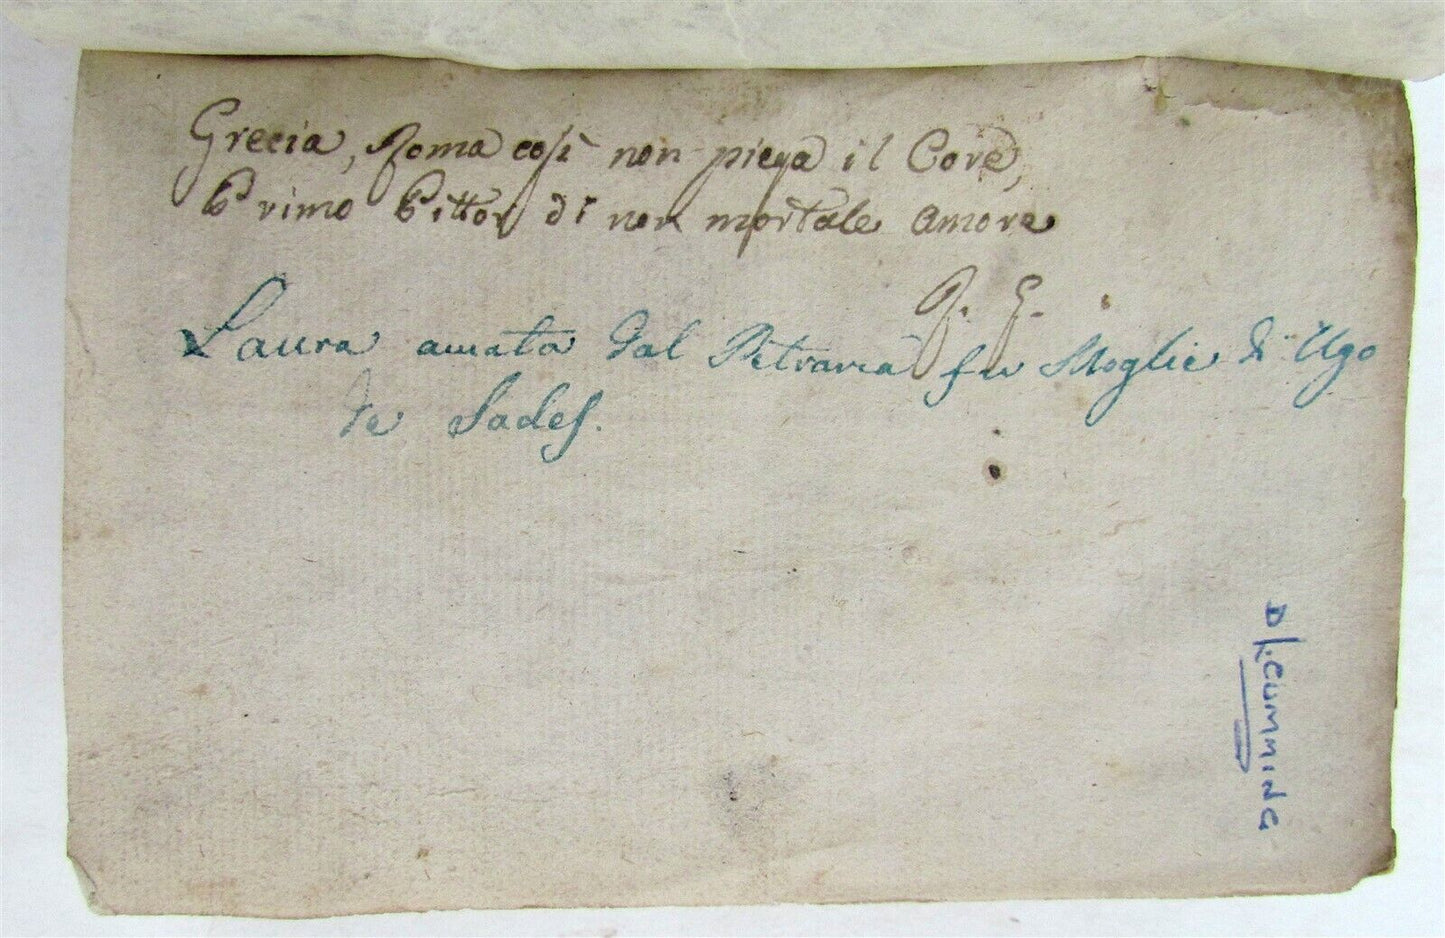 Grecia, Roma così non piega il Core,
Primo Pittor di non mortale amore
P. G.
Laura amata dal Petrarca fu Moglie di Ugo
de Sades.
D. K. CUMMING